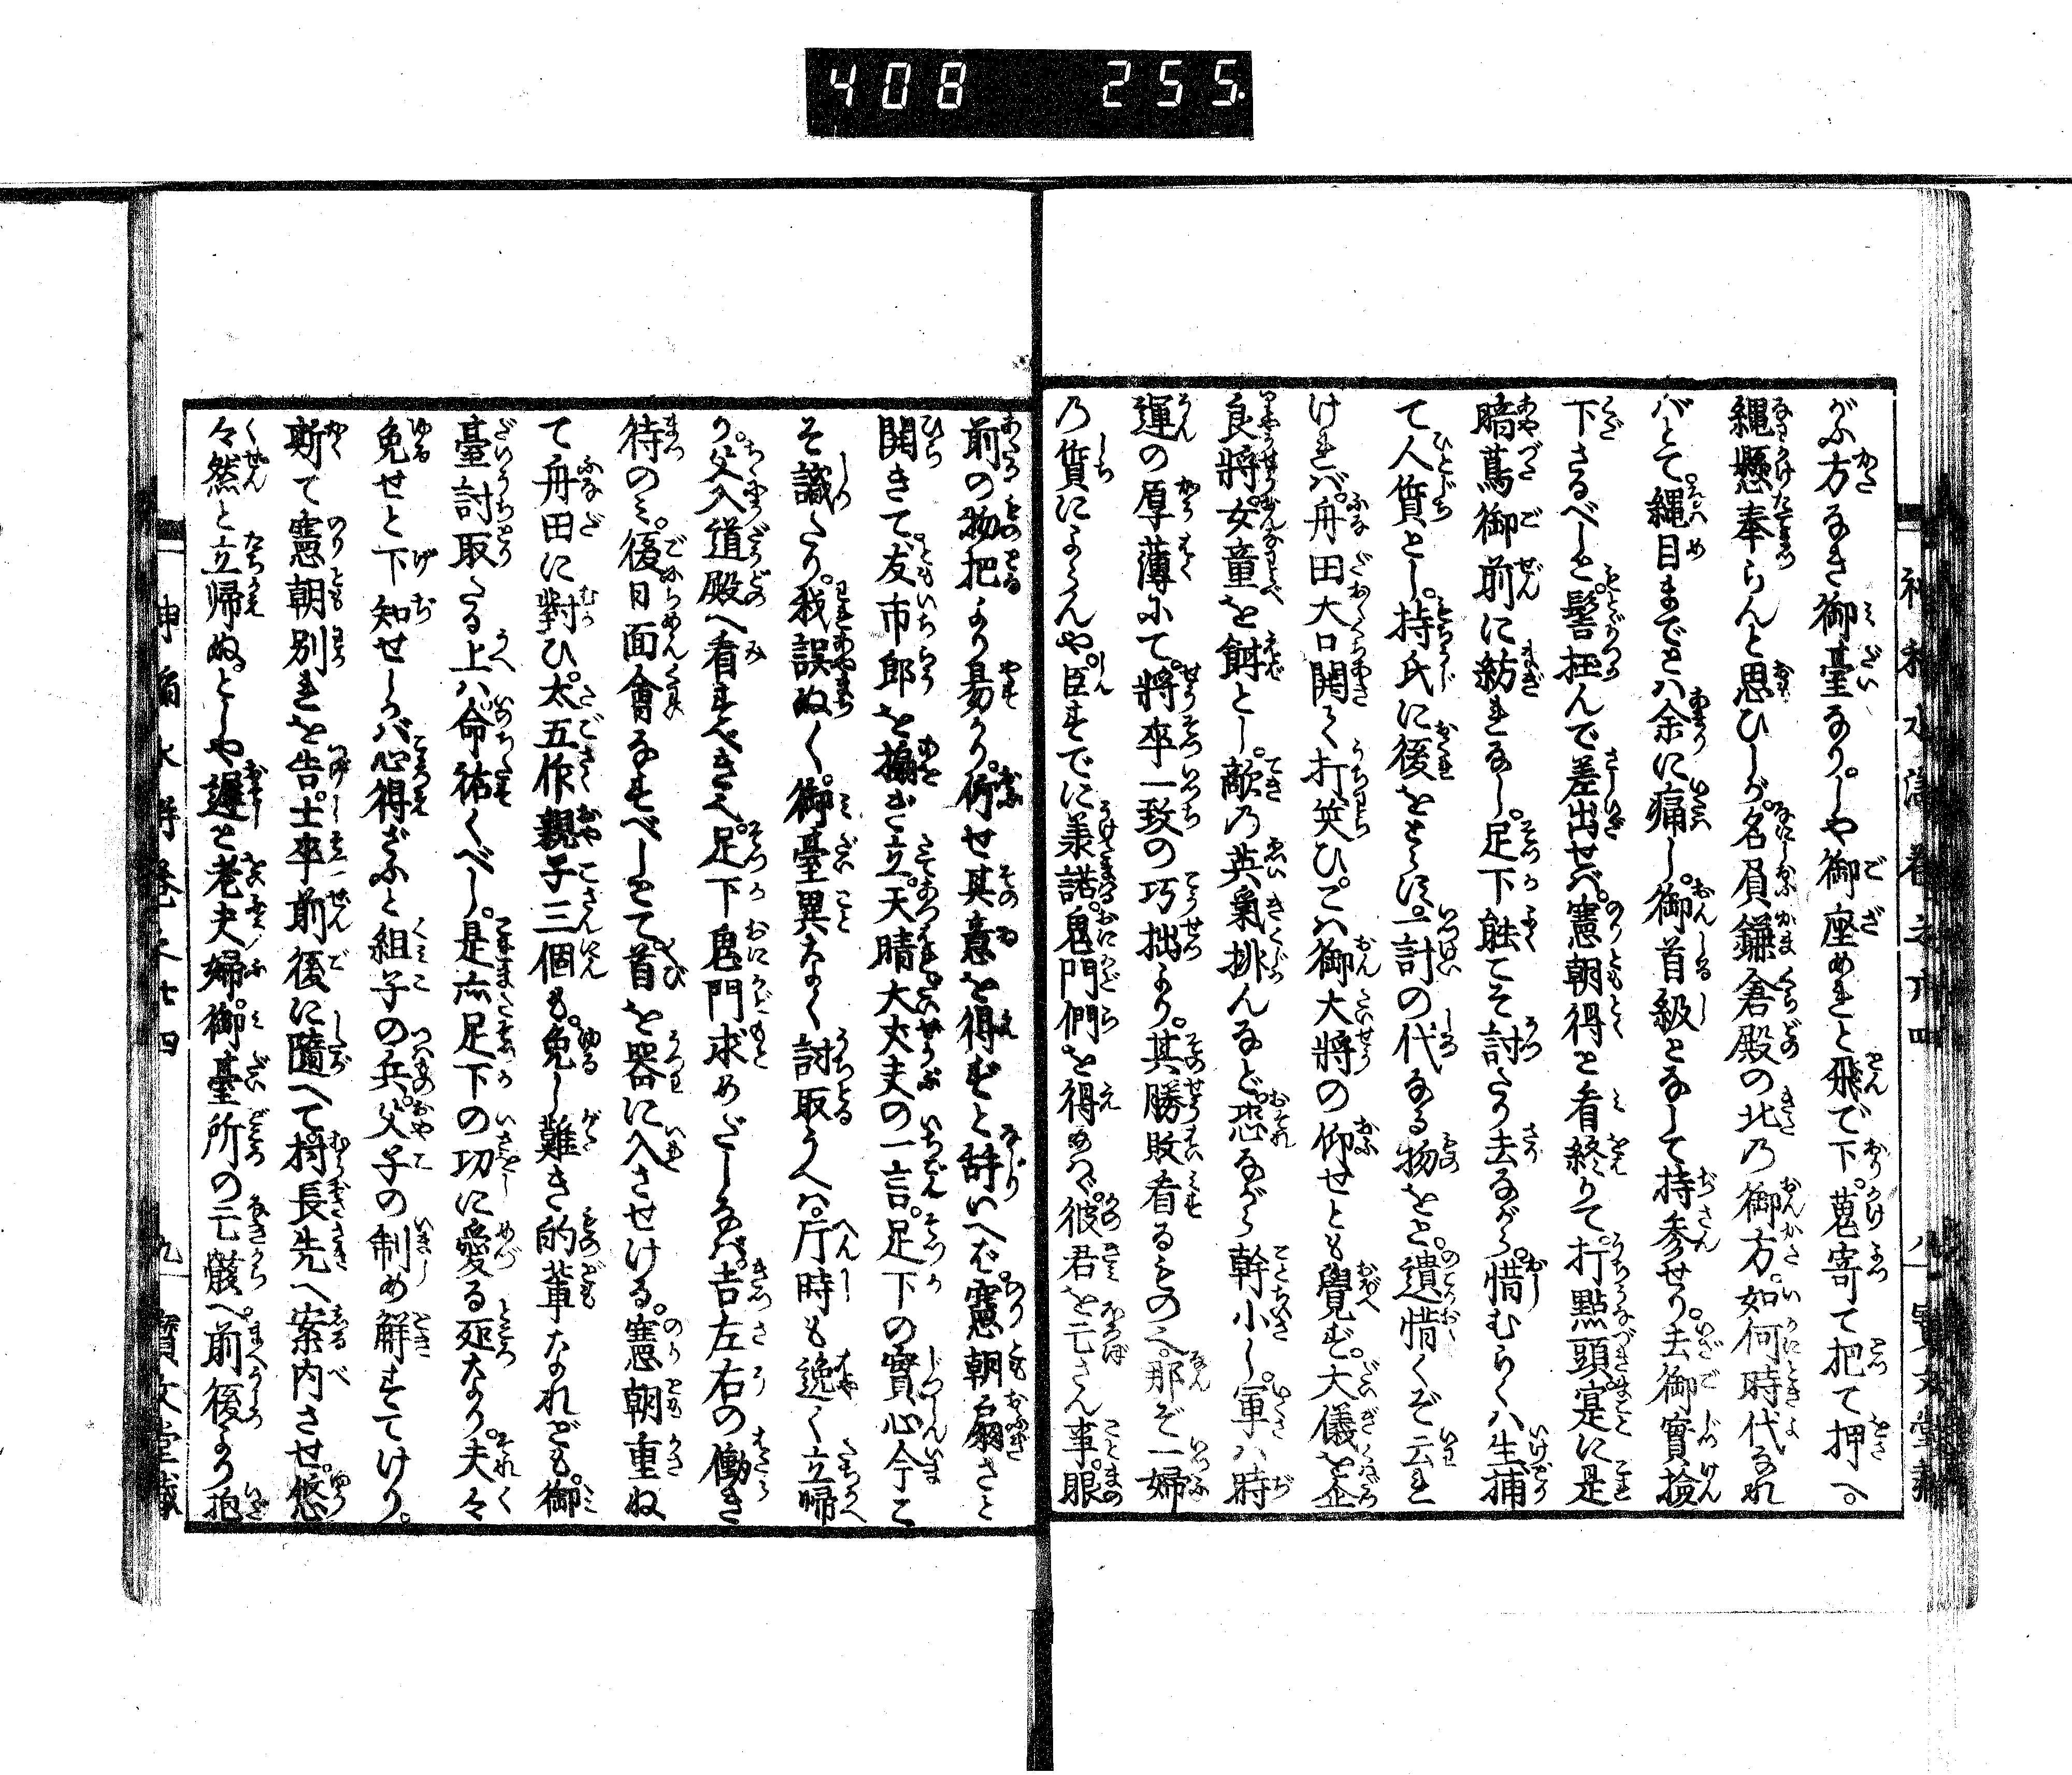 408 255.
がふ方なき御臺なり。しや御座めれと飛で下。蒐寄て把て押へ。
縄懸奉らんと思ひしが。名員鎌倉殿の北乃御方。如何時代なれ
バとて縄目までとハ余に痛し。御首級となして持参せり。去御實撿
下さるべしと。髻抂んで差出せバ。憲朝得と看終りて。打點頭。寔に是
暗蔦御前に紛れなし。足下能こそ討たり去ながら。惜むらくハ生捕
て人質とし。持氏に後をとらば。一計の代なる物をと。遺惜くぞ云れ
けれバ。舟田大口開て打笑ひ。こハ御大將の仰せとも覺ず。大儀を企
良將。女童を餌とし。敵乃英梟挑んなど。恐ながら幹小し。軍ハ時
運の厚薄にて。將卒一致の巧拙より。其勝敗看るものを。那ぞ一婦
乃質によらんや。臣すでに義諾。鬼門們を得めバ。彼君を亡さん事。眼
前の物把より易かり。仰せ其意を得ずと辞いへば。憲朝扇さと
開きて。友市郎を搧ぎ立。天晴大丈夫の一言。足下の實心今こ
そ識たり。我誤ぬ〱。御臺異なく討取うへハ。片時も逸く立帰
り。父入道殿へ看すべきへ。足下鬼門求めだしなば。吉左右の働き
待のミ。後日面會なすべしとて。首を器に入させける。憲朝重ね
て舟田に對ひ。太五作親子三個も。免し難き的輩なれども。御
臺討取たる上ハ。命祐くべし。是亦足下の功に愛る処なり。夫々
免せと下知せしかバ。心得ざふと組子の兵。父子の制め解すてけり。
斯て憲朝別れを告。士卒前後に隨へて。村長先へ案内させ。悠
々然と立帰ぬ。としや遅と老夫婦。御臺所の亡骸へ。前後より抱